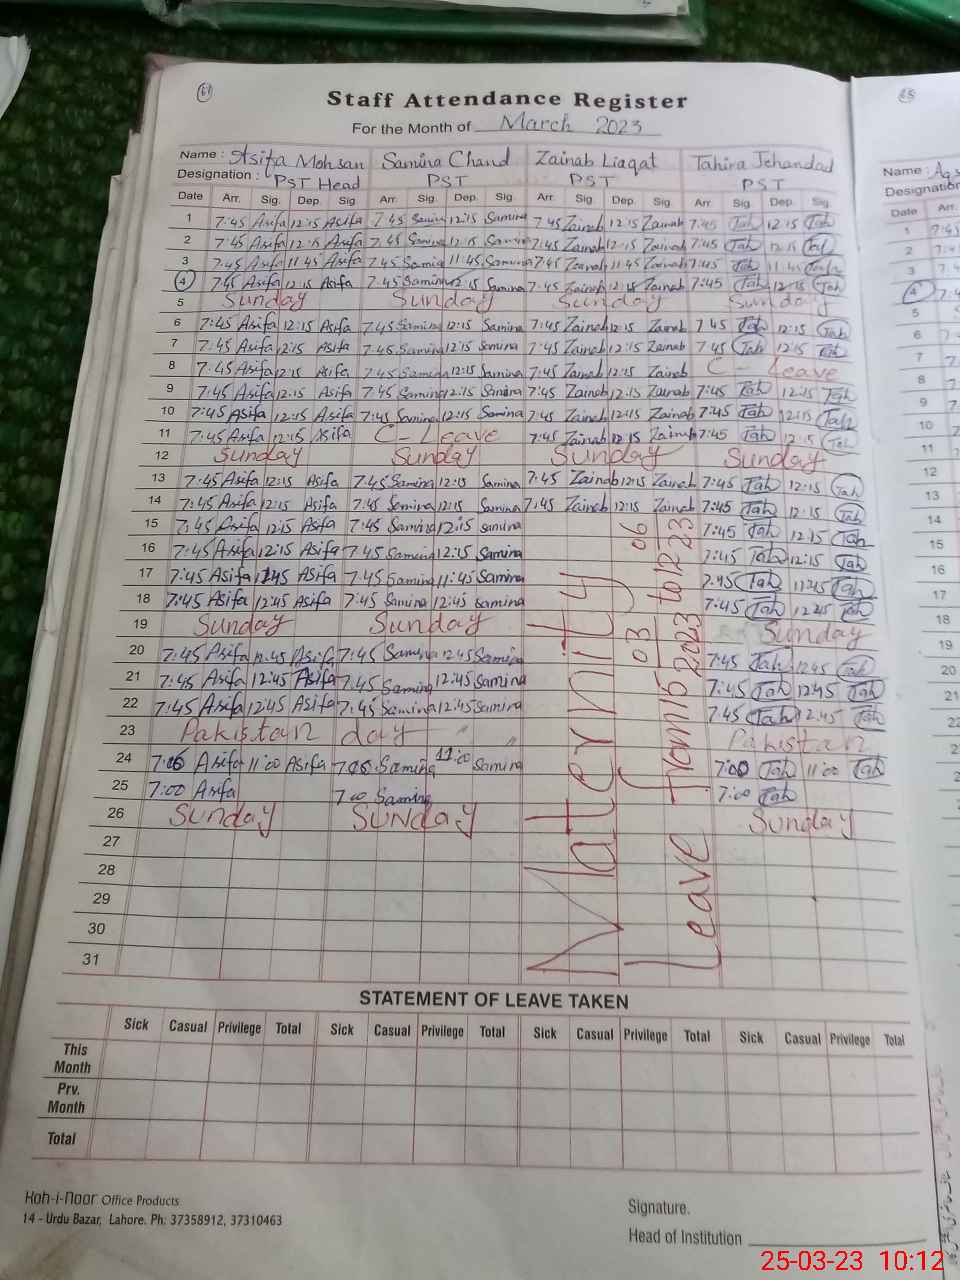 61
Staff Attendance Register
For the Month of March 2023
Name : Asifa Mohsan Samina Chand Zainab Liaqat Tahira Jehandad
Designation : PST Head PST PST PST
Date Arr. Sig. Dep. Sig Arr. Sig. Dep. Sig. Arr Sig. Dep. Sig. Arr Sig Dep. Sig.
1 7:45 Asifa 12:15 Asifa 7:45 Samina 12:15 Samina 7:45 Zainab 12:15 Zainab 7:45 Tah 12:15 Tah
2 7:45 Asifa 12:15 Asifa 7:45 Samina 12:15 Samina 7:45 Zainab 12:15 Zainab 7:45 Tah 12:15 Taf
3 7:45 Asifa 11:45 Asifa 7:45 Samina 11:45 Samina 7:45 Zainab 11:45 Zainab 7:45 Tah 11:45
4 7:45 Asifa 12:15 Asifa 7:45 Samina 12:15 Samina 7:45 Zainab 12:15 Zainab 7:45 Tah 12:15 Tah
5 Sunday Sunday Sunday Sunday
6 7:45 Asifa 12:15 Asifa 7:45 Samina 12:15 Samina 7:45 Zainab 12:15 Zainab 7:45 Tah 12:15 Tah
7 7:45 Asifa 12:15 Asifa 7:45 Samina 12:15 Samina 7:45 Zainab 12:15 Zainab 7:45 Tah 12:15 Tah
8 7:45 Asifa 12:15 Asifa 7:45 Samina 12:15 Samina 7:45 Zainab 12:15 Zainab C - Leave
9 7:45 Asifa 12:15 Asifa 7:45 Samina 12:15 Samina 7:45 Zainab 12:15 Zainab 7:45 Tah 12:15 Tah
10 7:45 Asifa 12:15 Asifa 7:45 Samina 12:15 Samina 7:45 Zainab 12:15 Zainab 7:45 Tah 12:15 Tah
11 7:45 Asifa 12:15 Asifa C - Leave 7:45 Zainab 12:15 Zainab 7:45 Tah 12:15 Tah
12 Sunday Sunday Sunday Sunday
13 7:45 Asifa 12:15 Asifa 7:45 Samina 12:15 Samina 7:45 Zainab 12:15 Zainab 7:45 Tah 12:15 Tah
14 7:45 Asifa 12:15 Asifa 7:45 Samina 12:15 Samina 7:45 Zainab 12:15 Zainab 7:45 Tah 12:15 Tah
15 7:45 Asifa 12:15 Asifa 7:45 Samina 12:15 Samina 7:45 Tah 12:15 Tah
16 7:45 Asifa 12:15 Asifa 7:45 Samina 12:15 Samina 7:45 Tah 12:15 Tah
17 7:45 Asifa 1145 Asifa 7:45 Samina 11:45 Samina 7:45 Tah 11:45 Tah
18 7:45 Asifa 12:45 Asifa 7:45 Samina 12:45 Samina 7:45 Tah 12:45 Tah
19 Sunday Sunday Sunday
20 7:45 Asifa 12:45 Asifa 7:45 Samina 12:45 Samina 7:45 Tah 12:45 Tah
21 7:45 Asifa 12:45 Asifa 7:45 Samina 12:45 Samina 7:45 Tah 12:45 Tah
22 7:45 Asifa 12:45 Asifa 7:45 Samina 12:45 Samina 7:45 Tah 12:45 Tah
23 Pakistan day " " Pakistan
24 7:00 Asifa 11:00 Asifa 7:00 Samina 11:00 Samina 7:00 Tah 11:00 Tah
25 7:00 Asifa 7:00 Samina 7:00 Tah
26 Sunday Sunday Sunday
27
28
29
30
31
Maternity
Leave from 15 03 2023 to 12 06 23
STATEMENT OF LEAVE TAKEN
Sick Casual Privilege Total Sick Casual Privilege Total Sick Casual Privilege Total Sick Casual Privilege Total
This Month
Prv. Month
Total
Koh-i-Noor Office Products
14 - Urdu Bazar, Lahore. Ph: 37358912, 37310463
Signature.
Head of Institution
Name :
Designation
Date Arr.
1
2
3
4
5
6
7
8
9
10
11
12
13
14
15
16
17
18
19
20
21
22
23
24
25-03-23 10:12